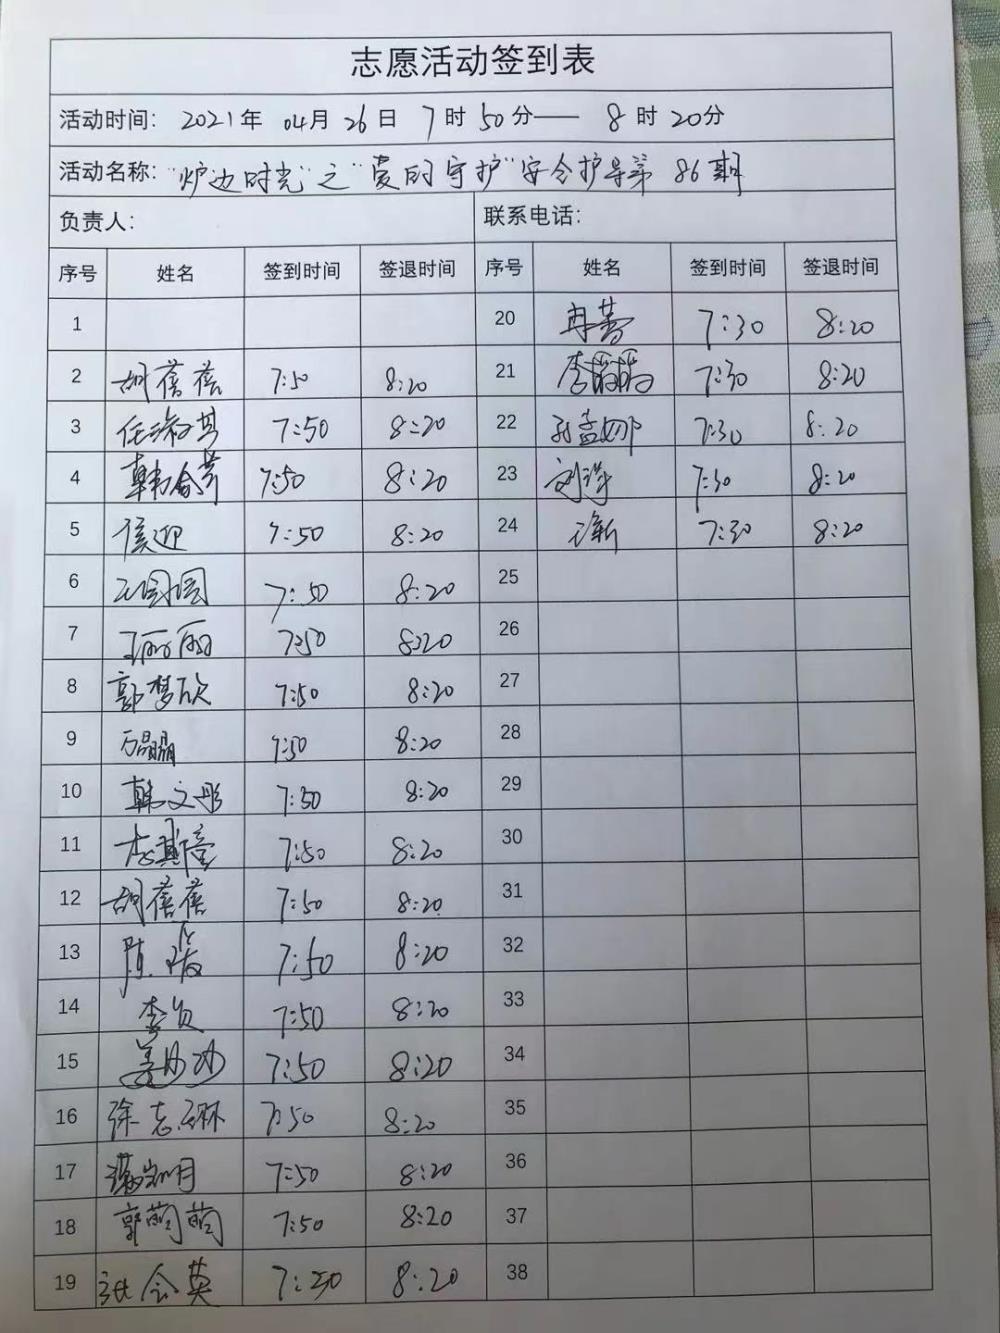 志愿活动签到表
活动时间: 2021年 04月 26日 7时 50分—— 8时 20分
活动名称: "炉边时光"之"爱的守护"安全护导第 86期
负责人: 联系电话:
序号 姓名 签到时间 签退时间 序号 姓名 签到时间 签退时间
1 20 冉蕾 7:30 8:20
2 胡蓓蓓 7:50 8:20 21 李 7:30 8:20
3 任淑其 7:50 8:20 22 孙孟娜 7:30 8:20
4 韩食芳 7:50 8:20 23 刘萍 7:30 8:20
5 侯迎 7:50 8:20 24 7:30 8:20
6 王园园 7:50 8:20 25
7 王丽丽 7:50 8:20 26
8 郭梦欣 7:50 8:20 27
9 万晶晶 7:50 8:20 28
10 韩文彤 7:50 8:20 29
11 李斯莹 7:50 8:20 30
12 胡蓓蓓 7:50 8:20 31
13 陈 7:50 8:20 32
14 李贞 7:50 8:20 33
15 姜沙沙 7:50 8:20 34
16 徐志琳 7:50 8:20 35
17 7:50 8:20 36
18 郭萌萌 7:50 8:20 37
19 张会英 7:50 8:20 38